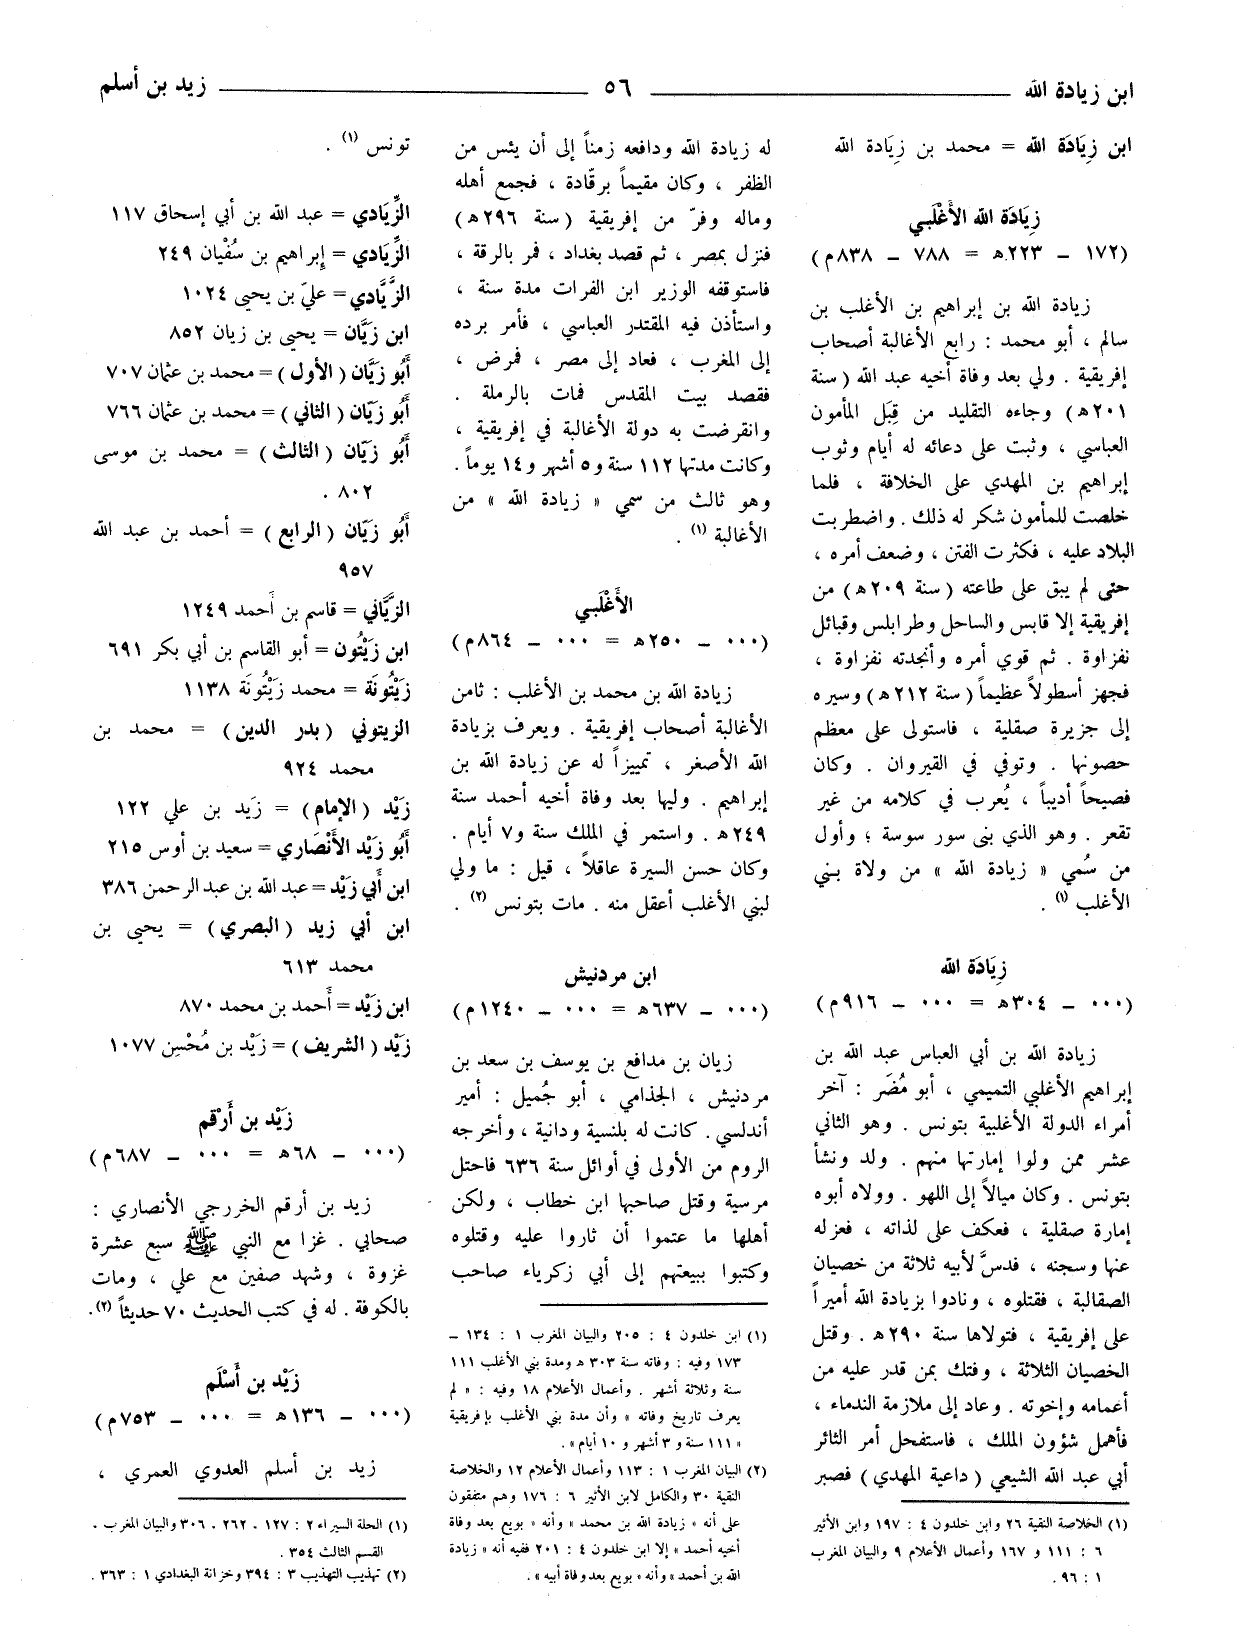 ابن زيادة الله ٥٦ زيد بن أسلم
ابن زِيَادَة الله = محمد بن زِيَادة الله
زِيَادَة الله الأَغْلَبي
(١٧٢ - ٢٢٣ه = ٧٨٨ - ٨٣٨م)
زيادة الله بن إبراهيم بن الأغلب بن
سالم ، أبو محمد : رابع الأغالبة أصحاب
إفريقية . ولي بعد وفاة أخيه عبد الله (سنة
٢٠١ه) وجاءه التقليد من قِبَل المأمون
العباسي ، وثبت على دعائه له أيام وثوب
إبراهيم بن المهدي على الخلافة ، فلما
خلصت للمأمون شكر له ذلك . واضطربت
البلاد عليه ، فكثرت الفتن ، وضعف أمره ،
حتى لم يبق على طاعته (سنة ٢٠٩ه) من
إفريقية إلا قابس والساحل وطرابلس وقبائل
نفزاوة . ثم قوي أمره وأنجدته نفزاوة ،
فجهز أسطولاً عظيماً (سنة ٢١٢ه) وسيره
إلى جزيرة صقلية ، فاستولى على معظم
حصونها . وتوفي في القيروان . وكان
فصيحاً أديباً ، يُعرب في كلامه من غير
تقعر . وهو الذي بنى سور سوسة ؛ وأول
من سُمي « زيادة الله » من ولاة بني
الأغلب (١) .
زِيَادَة الله
(٠٠٠ - ٣٠٤ه = ٠٠٠ - ٩١٦م)
زيادة الله بن أبي العباس عبد الله بن
إبراهيم الأغلبي التميمي ، أبو مُضَر : آخر
أمراء الدولة الأغلبية بتونس . وهو الثاني
عشر ممن ولوا إمارتها منهم . ولد ونشأ
بتونس . وكان ميالاً إلى اللهو . وولاه أبوه
إمارة صقلية ، فعكف على لذاته ، فعزله
عنها وسجنه ، فدسَّ لأبيه ثلاثة من خصيان
الصقالبة ، فقتلوه ، ونادوا بزيادة الله أميراً
على إفريقية ، فتولاها سنة ٢٩٠ه . وقتل
الخصيان الثلاثة ، وفتك بمن قدر عليه من
أعمامه وإخوته . وعاد إلى ملازمة الندماء ،
فأهمل شؤون الملك ، فاستفحل أمر الثائر
أبي عبد الله الشيعي (داعية المهدي) فصبر
(١) الخلاصة النقية ٢٦ وابن خلدون ٤ : ١٩٧ وابن الأثير
٦ : ١١١ و ١٦٧ وأعمال الأعلام ٩ والبيان المغرب
١ : ٩٦ .
له زيادة الله ودافعه زمناً إلى أن يئس من
الظفر ، وكان مقيماً برقّادة ، فجمع أهله
وماله وفرّ من إفريقية (سنة ٢٩٦ه)
فنزل بمصر ، ثم قصد بغداد ، فمر بالرقة ،
فاستوقفه الوزير ابن الفرات مدة سنة ،
واستأذن فيه المقتدر العباسي ، فأمر برده
إلى المغرب ، فعاد إلى مصر ، فمرض ،
فقصد بيت المقدس فمات بالرملة .
وانقرضت به دولة الأغالبة في إفريقية ،
وكانت مدتها ١١٢ سنة و٥ أشهر و١٤ يوماً .
وهو ثالث من سمي « زيادة الله » من
الأغالبة (١) .
الأَغْلَبي
(٠٠٠ - ٢٥٠ه = ٠٠٠ - ٨٦٤م)
زيادة الله بن محمد بن الأغلب : ثامن
الأغالبة أصحاب إفريقية . ويعرف بزيادة
الله الأصغر ، تمييزاً له عن زيادة الله بن
إبراهيم . وليها بعد وفاة أخيه أحمد سنة
٢٤٩ه . واستمر في الملك سنة و٧ أيام .
وكان حسن السيرة عاقلاً ، قيل : ما ولي
لبني الأغلب أعقل منه . مات بتونس (٢) .
ابن مردنيش
(٠٠٠ - ٦٣٧ه = ٠٠٠ - ١٢٤٠م)
زيان بن مدافع بن يوسف بن سعد بن
مردنيش ، الجذامي ، أبو جُميل : أمير
أندلسي . كانت له بلنسية ودانية ، وأخرجه
الروم من الأولى في أوائل سنة ٦٣٦ فاحتل
مرسية وقتل صاحبها ابن خطاب ، ولكن
أهلها ما عتموا أن ثاروا عليه وقتلوه
وكتبوا ببيعتهم إلى أبي زكرياء صاحب
(١) ابن خلدون ٤ : ٢٠٥ والبيان المغرب ١ : ١٣٤ -
١٧٣ وفيه : وفاته سنة ٣٠٣ ه ومدة بني الأغلب ١١١
سنة وثلاثة أشهر . وأعمال الأعلام ١٨ وفيه : « لم
يعرف تاريخ وفاته » وأن مدة بني الأغلب بإفريقية
« ١١١ سنة و ٣ أشهر و ١٠ أيام» .
(٢) البيان المغرب ١ : ١١٣ وأعمال الأعلام ١٢ والخلاصة
النقية ٣٠ والكامل لابن الأثير ٦ : ١٧٦ وهم متفقون
على أنه « زيادة الله بن محمد » وأنه « بويع بعد وفاة
أخيه أحمد » إلا ابن خلدون ٤ : ٢٠١ ففيه أنه « زيادة
الله بن أحمد » وأنه « بويع بعد وفاة أبيه » .
تونس (١) .
الزِّيَادي = عبد الله بن أبي إسحاق ١١٧
الزِّيَادي = إبراهيم بن سُفْيان ٢٤٩
الزَّيَّادي = عليّ بن يحيى ١٠٢٤
ابن زَيَّان = يحيى بن زيان ٨٥٢
أَبُو زَيَّان (الأول) = محمد بن عثمان ٧٠٧
أَبُو زَيّان (الثاني) = محمد بن عثمان ٧٦٦
أَبُو زَيّان (الثالث) = محمد بن موسى
٨٠٢ .
أَبُو زَيّان (الرابع) = أحمد بن عبد الله
٩٥٧
الزَّيَّاني = قاسم بن أحمد ١٢٤٩
ابن زَيْتُون = أبو القاسم بن أبي بكر ٦٩١
زَيْتُونَة = محمد زَيْتُونَة ١١٣٨
الزيتوني (بدر الدين) = محمد بن
محمد ٩٢٤
زَيْد (الإمام) = زَيد بن علي ١٢٢
أَبُو زَيْد الأَنْصَاري = سعيد بن أوس ٢١٥
ابن أَبي زَيْد = عبد الله بن عبد الرحمن ٣٨٦
ابن أبي زيد (البصري) = يحيى بن
محمد ٦١٣
ابن زَيْد = أَحمد بن محمد ٨٧٠
زَيْد (الشريف) = زَيْد بن مُحْسِن ١٠٧٧
زَيْد بن أَرْقم
(٠٠٠ - ٦٨ه = ٠٠٠ - ٦٨٧م)
زيد بن أرقم الخررجي الأنصاري :
صحابي . غزا مع النبي ﷺ سبع عشرة
غزوة ، وشهد صفين مع علي ، ومات
بالكوفة . له في كتب الحديث ٧٠ حديثاً (٢) .
زَيْد بن أَسْلَم
(٠٠٠ - ١٣٦ه = ٠٠٠ - ٧٥٣م)
زيد بن أسلم العدوي العمري ،
(١) الحلة السيراء ٢ : ١٢٧ ، ٢٦٢ ، ٣٠٦ والبيان المغرب ،
القسم الثالث ٣٥٤ .
(٢) تهذيب التهذيب ٣ : ٣٩٤ وخزانة البغدادي ١ : ٣٦٣ .